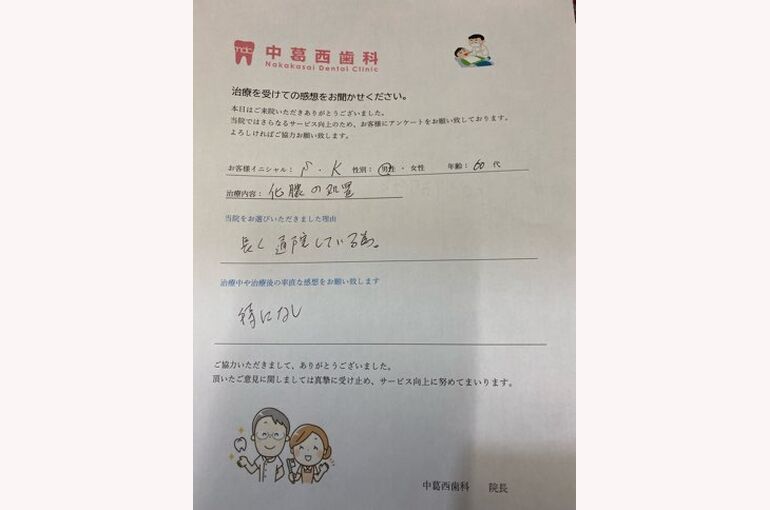 中葛西歯科
Nakakasai Dental Clinic
治療を受けての感想をお聞かせください。
本日はご来院いただきありがとうございました。
当院ではさらなるサービス向上のため、お客様にアンケートをお願い致しております。
よろしければご協力お願い致します。
お客様イニシャル： S・K 性別：男性・女性 年齢：60代
治療内容： 化膿の処置
当院をお選びいただきました理由
長く通院している為。
治療中や治療後の率直な感想をお願い致します
特になし
ご協力いただきまして、ありがとうございました。
頂いたご意見に関しましては真摯に受け止め、サービス向上に努めてまいります。
中葛西歯科 院長